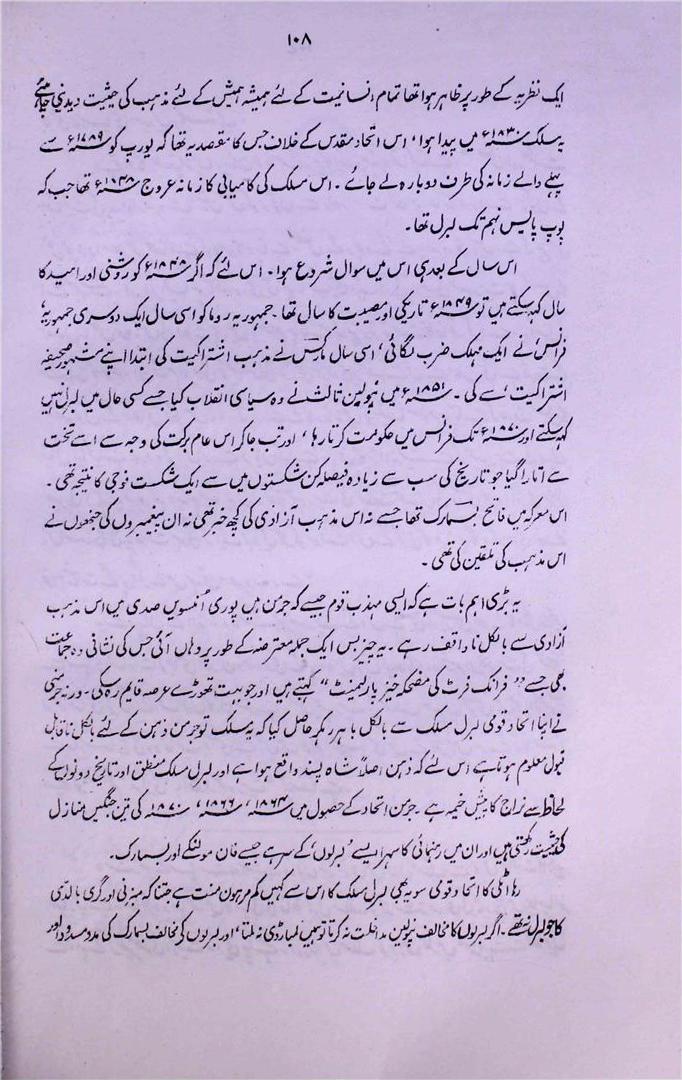 ۱۰۸
ایک نظریہ کے طور پر ظاہر ہوا تھا تمام انسانیت کے لئے ہمیشہ ہمیش کے لئے مذہب کی حیثیت دیدینی چاہئے
یہ مسلک ۱۸۳۰ء میں پیدا ہوا، اس اتحاد مقدس کے خلاف جس کا مقصد یہ تھا کہ یورپ کو ۱۷۸۹ء سے
پہلے والے زمانہ کی طرف دوبارہ لے جائے۔ اس مسلک کی کامیابی کا زمانہ عروج ۱۸۴۸ء تھا جب کہ
پوپ پایس نہم تک لبرل تھا۔
اس سال کے بعد ہی اس میں سوال شروع ہوا۔ اس لئے کہ اگر ۱۸۴۸ء کو روشنی اور امید کا
سال کہہ سکتے ہیں تو ۱۸۴۹ء تاریکی اور مصیبت کا سال تھا۔ جمہوریہ روما کو اسی سال ایک دوسری جمہوریہ،
فرانس، نے ایک مہلک ضرب لگائی، اسی سال مارکس نے مذہب اشتراکیت کی ابتدا اپنے مشہور صحیفہ
اشتراکیت، سے کی۔ ۱۸۵۱ء میں نپولین ثالث نے وہ سیاسی انقلاب کیا جسے کسی حال میں لبرل نہیں
کہہ سکتے اور ۱۸۷۰ء تک فرانس میں حکومت کرتا رہا، اور تب جا کر اس عام حرکت کی وجہ سے اسے تخت
سے اتارا گیا جو تاریخ کی سب سے زیادہ فیصلہ کن شکستوں میں سے ایک شکست فوجی کا نتیجہ تھی۔
اس معرکہ میں فاتح بسمارک تھا جسے نہ اس مذہب آزادی کی کچھ خبر تھی نہ ان پیغمبروں کی جنھوں نے
اس مذہب کی تلقین کی تھی۔
یہ بڑی اہم بات ہے کہ ایسی مہذب قوم جیسے کہ جرمن ہیں پوری اُنیسویں صدی میں اس مذہب
آزادی سے بالکل ناواقف رہے۔ یہ چیز بس ایک جملہ معترضہ کے طور پر وہاں آئی جس کی نشانی وہ جماعت
تھی جسے "فرانک فرٹ کی مضحکہ خیز پارلیمنٹ" کہتے ہیں اور جو بہت تھوڑے عرصہ قایم رہ سکی۔ ورنہ جرمنی
نے اپنا اتحاد قومی لبرل مسلک سے بالکل باہر رکھ کر حاصل کیا کہ یہ مسلک تو جرمن ذہن کے لئے بالکل ناقابل
قبول معلوم ہوتا ہے اس لئے کہ ذہن اصلاً شاہ پسند واقع ہوا ہے اور لبرل مسلک منطق اور تاریخ دونوں کے
لحاظ سے نراج کا پیش خیمہ ہے۔ جرمن اتحاد کے حصول میں ۱۸۶۴ء، ۱۸۶۶ء، ۱۸۷۰ء کی تین جنگیں منازل
کی حیثیت رکھتی ہیں اور ان میں رہنمائی کا سہرا ایسے 'لبرلوں' کے سر ہے جیسے فان مولٹکے اور بسمارک۔
رہا اٹلی کا اتحاد قومی سو یہ بھی لبرل مسلک کا اس سے کہیں کم مرہون منت ہے جتنا کہ میزنی اور گری بالدی
کا جو لبرل نہ تھے۔ اگر لبرلوں کا مخالف نپولین مداخلت نہ کرتا تو ہمیں لمبارڈی نہ ملتا، اور لبرلوں کی مخالف بسمارک کی مدد